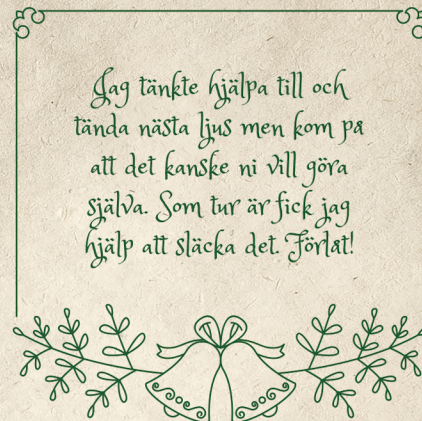 Jag tänkte hjälpa till och
tända nästa ljus men kom på
att det kanske ni vill göra
själva. Som tur är fick jag
hjälp att släcka det. Förlåt!